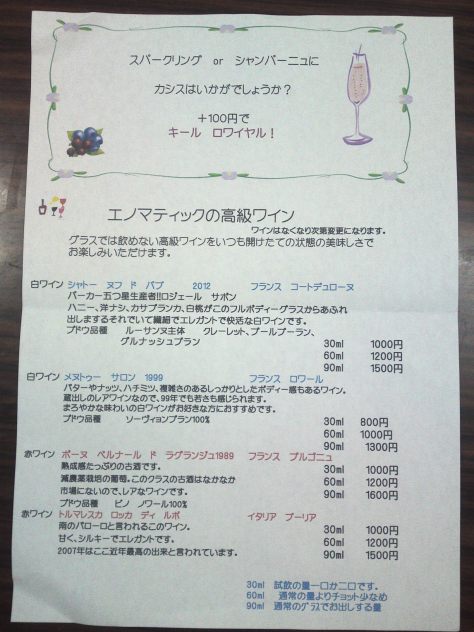 スパークリング or シャンパーニュに
カシスはいかがでしょうか？
＋100円で
キール ロワイヤル！
エノマティックの高級ワイン
ワインはなくなり次第変更になります。
グラスでは飲めない高級ワインをいつも開けたての状態の美味しさで
お楽しみいただけます。
白ワイン シャトー ヌフ ド パプ 2012 フランス コートデュローヌ
パーカー五つ星生産者!!ロジェール サボン
ハニー、洋ナシ、カサブランカ、白桃がこのフルボディーグラスからあふれ
出しますそれでいて繊細でエレガントで快活な白ワインです。
ブドウ品種 ルーサンヌ主体 クレーレット、ブールブーラン、
グルナッシュブラン
30ml 1000円
60ml 1200円
90ml 1500円
白ワイン メヌトゥー サロン 1999 フランス ロワール
バターやナッツ、ハチミツ、複雑さのあるしっかりとしたボディー感もあるワイン。
蔵出しのレアワインなので、99年でも若さも感じられます。
まろやかな味わいの白ワインがお好きな方におすすめです。
ブドウ品種 ソーヴィヨンブラン100%
30ml 800円
60ml 1000円
90ml 1300円
赤ワイン ボーヌ ベルナール ド ラグランジュ1989 フランス ブルゴニュ
熟成感たっぷりの古酒です。
減農薬栽培の葡萄。このクラスの古酒はなかなか
市場にないので、レアなワインです。
ブドウ品種 ピノ ノワール100%
30ml 1000円
60ml 1200円
90ml 1600円
赤ワイン トルマレスカ ロッカ ディ ルポ イタリア プーリア
南のバローロと言われるこのワイン。
甘く、シルキーでエレガントです。
2007年はここ近年最高の出来と言われています。
30ml 1000円
60ml 1200円
90ml 1500円
30ml 試飲の量一口か二口です。
60ml 通常の量よりチョット少なめ
90ml 通常のグラスでお出しする量